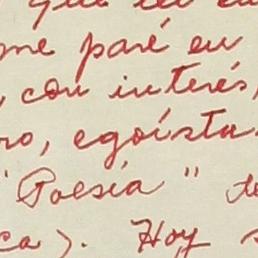 que
me paré en
, con interés,
ro, egoísta.
"Poesía" de
ca). Hoy s